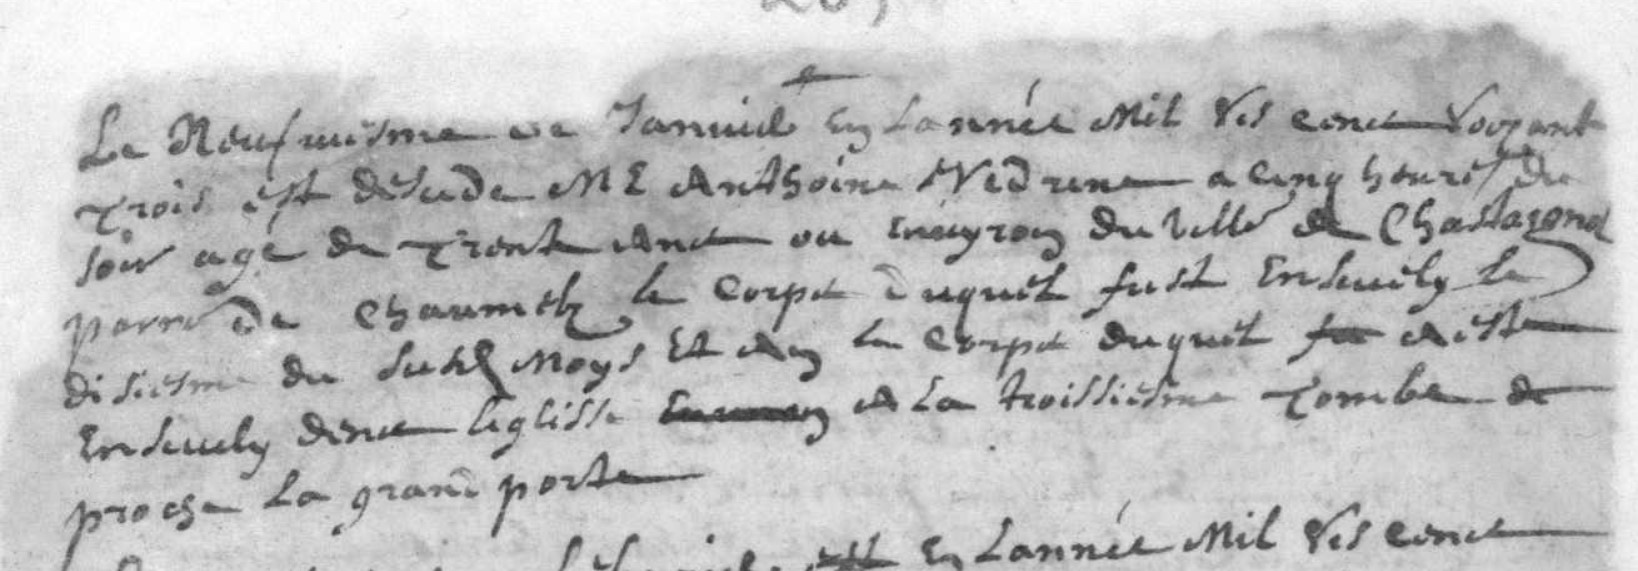 Le Neufviesme de Januie En Lannée Mil Vis cenct soixante
Trois est deseude Me Anthoine Vedrene a cinq heures du
soir agé de Trente Anct ou Enuyron du Ville de Chastagnol
parre de Chaumeil le Corpt duquel fust Enseuely le
disiesme du susd Moys Et An le Corpt duquel a este
Enseuely dena leglisse A La troissiesme Tombe de
proche La grand porte
En Lannée Mil Vis cenct